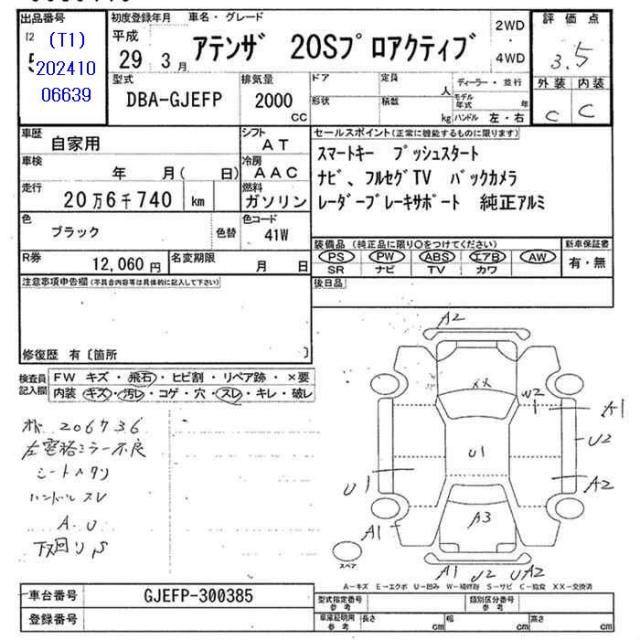 出品番号 初度登録年月 車名・グレード 評価点
平成 29年 3月 アテンザ 20Sプロアクティブ 2WD・4WD 3.5
(T1)
202410
06639
型式 DBA-GJEFP 排気量 2000 CC
ドア 定員 人 ディーラー・並行 外装 内装
形状 積載 kg モデル年式 年 ハンドル 左・右 C C
車歴 自家用 シフト AT
セールスポイント(正常に機能するものに限ります)
車検 年 月( 日) 冷房 AAC
スマートキー プッシュスタート
ナビ、フルセグTV バックカメラ
レーダーブレーキサポート 純正アルミ
走行 20万6千740 km 燃料 ガソリン
色 ブラック 色替 色コード 41W
装備品(純正品に限り○をつけてください) 新車保証書
PS PW ABS エアB AW 有・無
SR ナビ TV カワ
R券 12,060円 名変期限 月 日
後日品
注意事項申告欄(不具合内容等は具体的に記入して下さい)
修復歴 有〔箇所 〕
検査員記入欄 FW キズ・飛石・ヒビ割・リペア跡・×要
内装 キズ・汚レ・コゲ・穴・スレ・キレ・破レ
206736
左電格ミラー不良
シートヘタリ
ハンドルスレ
A.U
下回りS
A2
XX
W2
A1
U2
U1
U1
A2
A3
A1
スペア
A1 U2 UA2
A-キズ E-エクボ U-凹み W-補修跡 S-サビ C-腐食 XX-交換済
車台番号 GJEFP-300385
型式指定番号 参考 類別区分番号 参考
登録番号
車庫証明用 参考 長さ cm 幅 cm 高さ cm